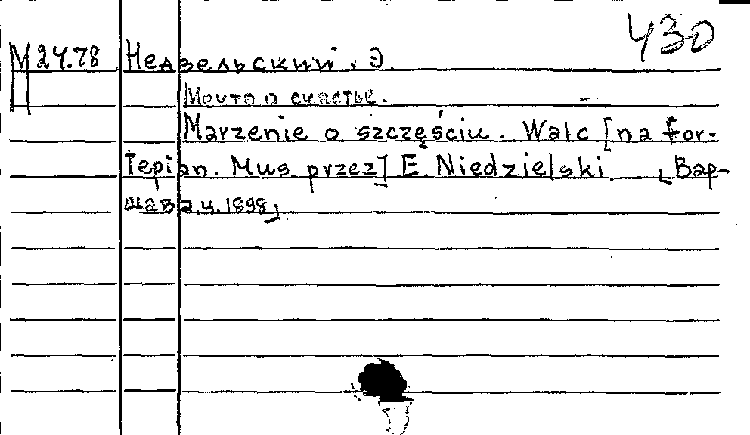 430
М 24.78 Недзельский. Э.
Мечта о счастье.
Marzenie o szczęściu. Walc [na for-
tepian. Mus przez] E. Niedzielski. [Вар-
шава, ц. ц. 1898]